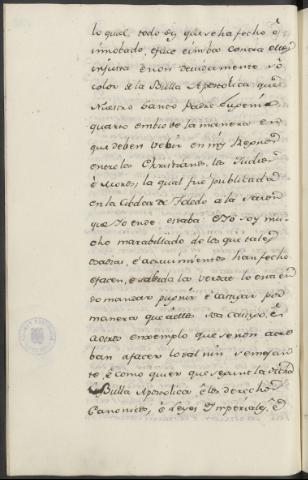 lo qual todo oy que se ha fecho é
innobado, é face é imbia contra ellos
injusta é non devidamente so
color de la Bulla Apostolica que
Nuestro Santo Padre Eugenio
quarto embió de la manera en
que deben veber en mis Regnos
entre los Christianos, los Judios
é Moros, la qual fué publicada
en la Cibdat de Toledo a la sazon
que Yo ende estaba é Yo soy mu-
cho marabillado de los que tales
cosas, é movimientos han fecho
é facen, é sabida la verdat lo entien-
do mandar punir é castigar por
manera que á ellos sea castigo, é á
otros enxemplo que se non atre-
ban a facer lo tal nin semejan-
te, é como quier que segunt la dicha
Bulla Apostolica, é los derechos
Canonicos, é Leyes Imperiales, é